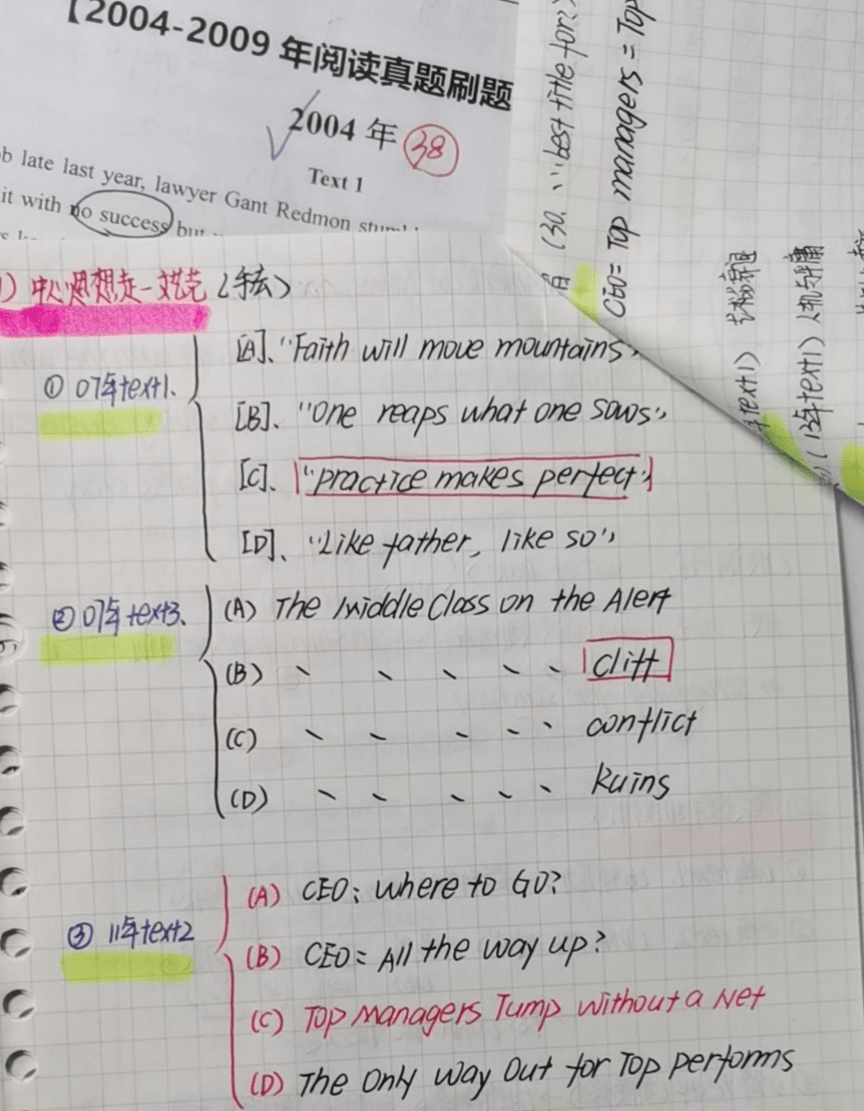 【2004-2009 年阅读真题刷题
2004 年 38
Text 1
b late last year, lawyer Gant Redmon
it with no success but
(30. ... best title for?)
CEO = Top managers = Top
中心思想走一
① 07年text1、
[A]、"Faith will move mountains"
[B]、"One reaps what one sows"
[C]、"practice makes perfect"
[D]、"Like father, like so"
② 07年text3、
(A) The Middle Class on the Alert
(B) 、 、 、 、 、 Cliff
(C) 、 、 、 、 、 conflict
(D) 、 、 、 、 、 Ruins
③ 11年text2
(A) CEO: Where to GO?
(B) CEO: All the way up?
(C) Top Managers Jump Without a Net
(D) The Only Way Out for Top performs
年text1)
(13年text1)